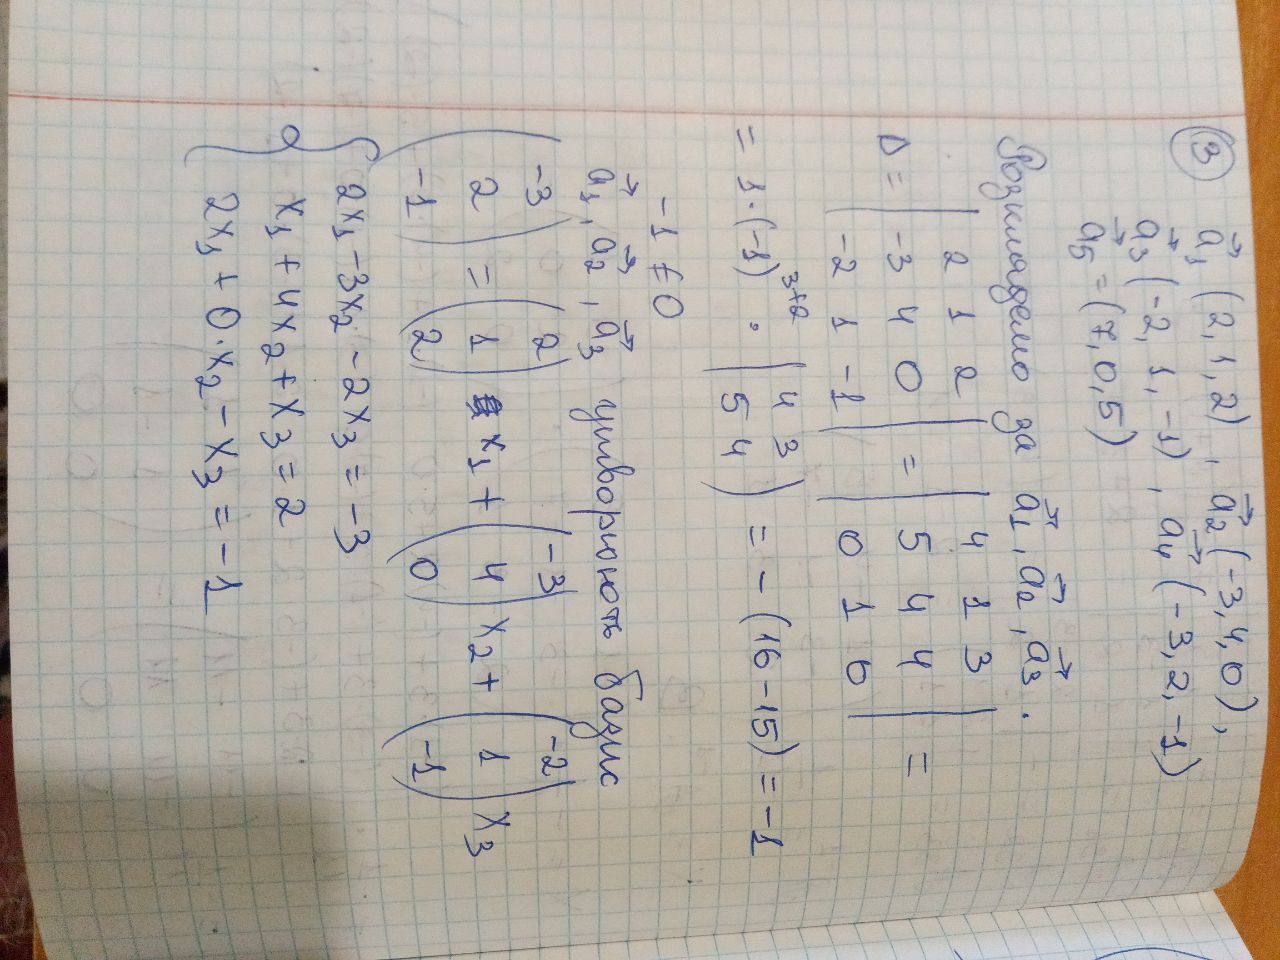 3 a⃗1 (2, 1, 2) , a⃗2 (-3, 4, 0) ,
a⃗3 (-2, 1, -1) , a⃗4 (-3, 2, -1)
a⃗5 = (7, 0, 5)
Розкладемо за a⃗1 , a⃗2 , a⃗3 .
Δ = | 2 1 2 | = | 4 1 3 | =
| -3 4 0 | | 5 4 4 |
| -2 1 -1 | | 0 1 0 |
= 1 · (-1)^3+2 · | 4 3 ) = - (16 - 15) = -1
| 5 4 )
-1 ≠ 0
a⃗1 , a⃗2 , a⃗3 утворюють базис
( -3 ) = ( 2 ) x1 + ( -3 ) x2 + ( -2 ) x3
( 2 ) ( 1 ) ( 4 ) ( 1 )
( -1 ) ( 2 ) ( 0 ) ( -1 )
{ 2x1 - 3x2 - 2x3 = -3
x1 + 4x2 + x3 = 2
2x1 + 0·x2 - x3 = -1